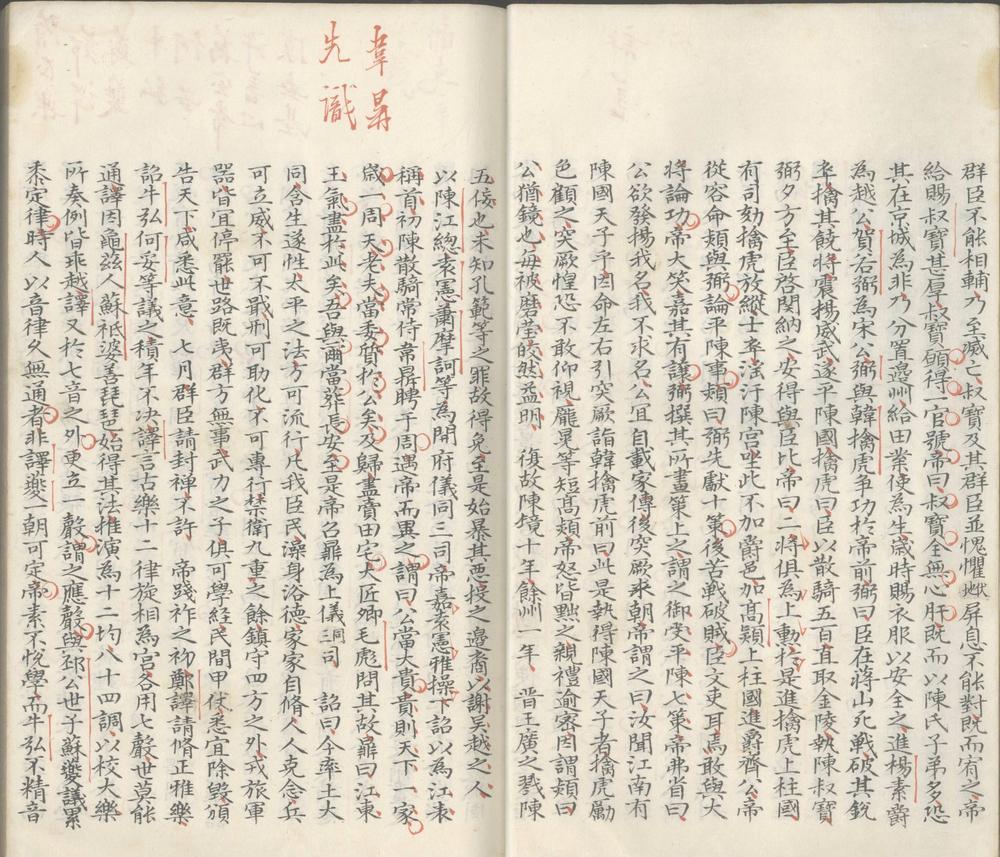 群臣不能相輔乃至滅亡叔寶及其群臣並愧懼伏地屏息不能對既而宥之帝
給賜叔寶甚厚叔寶願得一官號帝曰叔寶全無心肝既而以陳氏子弟多恐
其在京城為非乃分置邊州給田業使為生歲時賜衣服以安全之進楊素爵
為越公賀若弼為宋公弼與韓擒虎争功於帝前弼曰臣在蒋山死戰破其銳
卒擒其饒將震揚威武遂平陳國擒虎曰臣以散騎五百直取金陵執陳叔寶
弼夕方至臣啓関納之安得與臣比帝曰二將俱為上動於是進擒虎上柱國
有司劾擒虎放縱士卒滛汙陳宫坐此不加爵邑加高熲上柱國進爵齊公帝
從容命熲與弼論平陳事熲曰弼先獻十策後苦戰破賊臣文吏耳焉敢與大
將論功帝大笑嘉其有讓弼撰其所畫策上之謂之御受平陳七策帝弗省曰
公欲發揚我名我不求名公宜自載家傳後突厥來朝帝謂之曰汝聞江南有
陳國天子乎因命左右引突厥詣韓擒虎前曰此是執得陳國天子者擒虎厲
色顧之突厥惶恐不敢仰視龐晃等短髙熲帝怒皆黜之親禮逾密因謂熲曰
公猶鏡也每被磨瑩皎然益明　復故陳境十年餘州一年　晋王廣之戮陳
五佞也未知孔範等之罪故得免至是始暴其悪投之邊裔以謝吴越之人
以陳江總袁憲蕭摩訶等為開府儀同三司帝嘉袁憲雅操下詔以為江表
稱首初陳散騎常侍韋鼎聘于周遇帝而異之謂曰公當大貴貴則天下一家
歲一周天老夫當委質於公矣及歸盡賣田宅大匠卿毛彪問其故鼎曰江東
王氣盡於此矣吾與爾當葬長安至是帝召鼎為上儀同三司　詔曰今率土大
同含生遂性太平之法方可流行凡我臣民澡身浴德家家自脩人人克念兵
可立威不可不戢刑可助化不可專行禁衛九重之餘鎮守四方之外戎旅軍
器皆宜停罷世路既夷群方無事武力之子俱可學経民間甲仗悉宜除毀頒
告天下咸悉此意　七月群臣請封禅不許　帝踐祚之初鄭譯請脩正雅樂
詔牛弘何妥等議之積年不决譯言古樂十二律旋相為宮各用七聲世莫能
通譯因龜兹人蘇祇婆善琵琶始得其法推演為十二均八十四調以校大樂
所奏例皆乖越譯又於七音之外更立一聲謂之應聲與邳公世子蘇夔議累
黍定律時人以音律久無通者非譯夔一朝可定帝素不悅學而牛弘不精音
韋鼎
先識